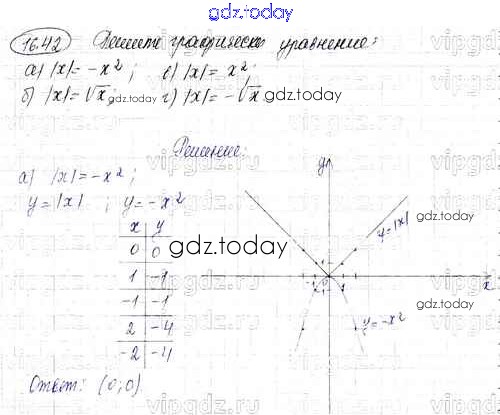 gdz.today
16.42 Решите графически уравнение:
а) |x| = -x²; в) |x| = x²;
б) |x| = √x; г) |x| = -√x.
gdz.today
gdz.today
Решение:
а) |x| = -x²;
y = |x| ; y = -x²
x y
0 0
1 -1
-1 -1
2 -4
-2 -4
gdz.today
y
y = |x|
gdz.today
x
gdz.today
y = -x²
gdz.today
Ответ: (0; 0)
vipgdz.ru